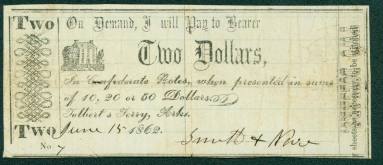 Two
On Demand, I will Pay to Bearer
Two Dollars,
In Confederate Notes, when presented in sums
of 10, 20 or 50 Dollars.
Talbert's Ferry, Arks.
June 15 1862.
Two
No 7
Smith &